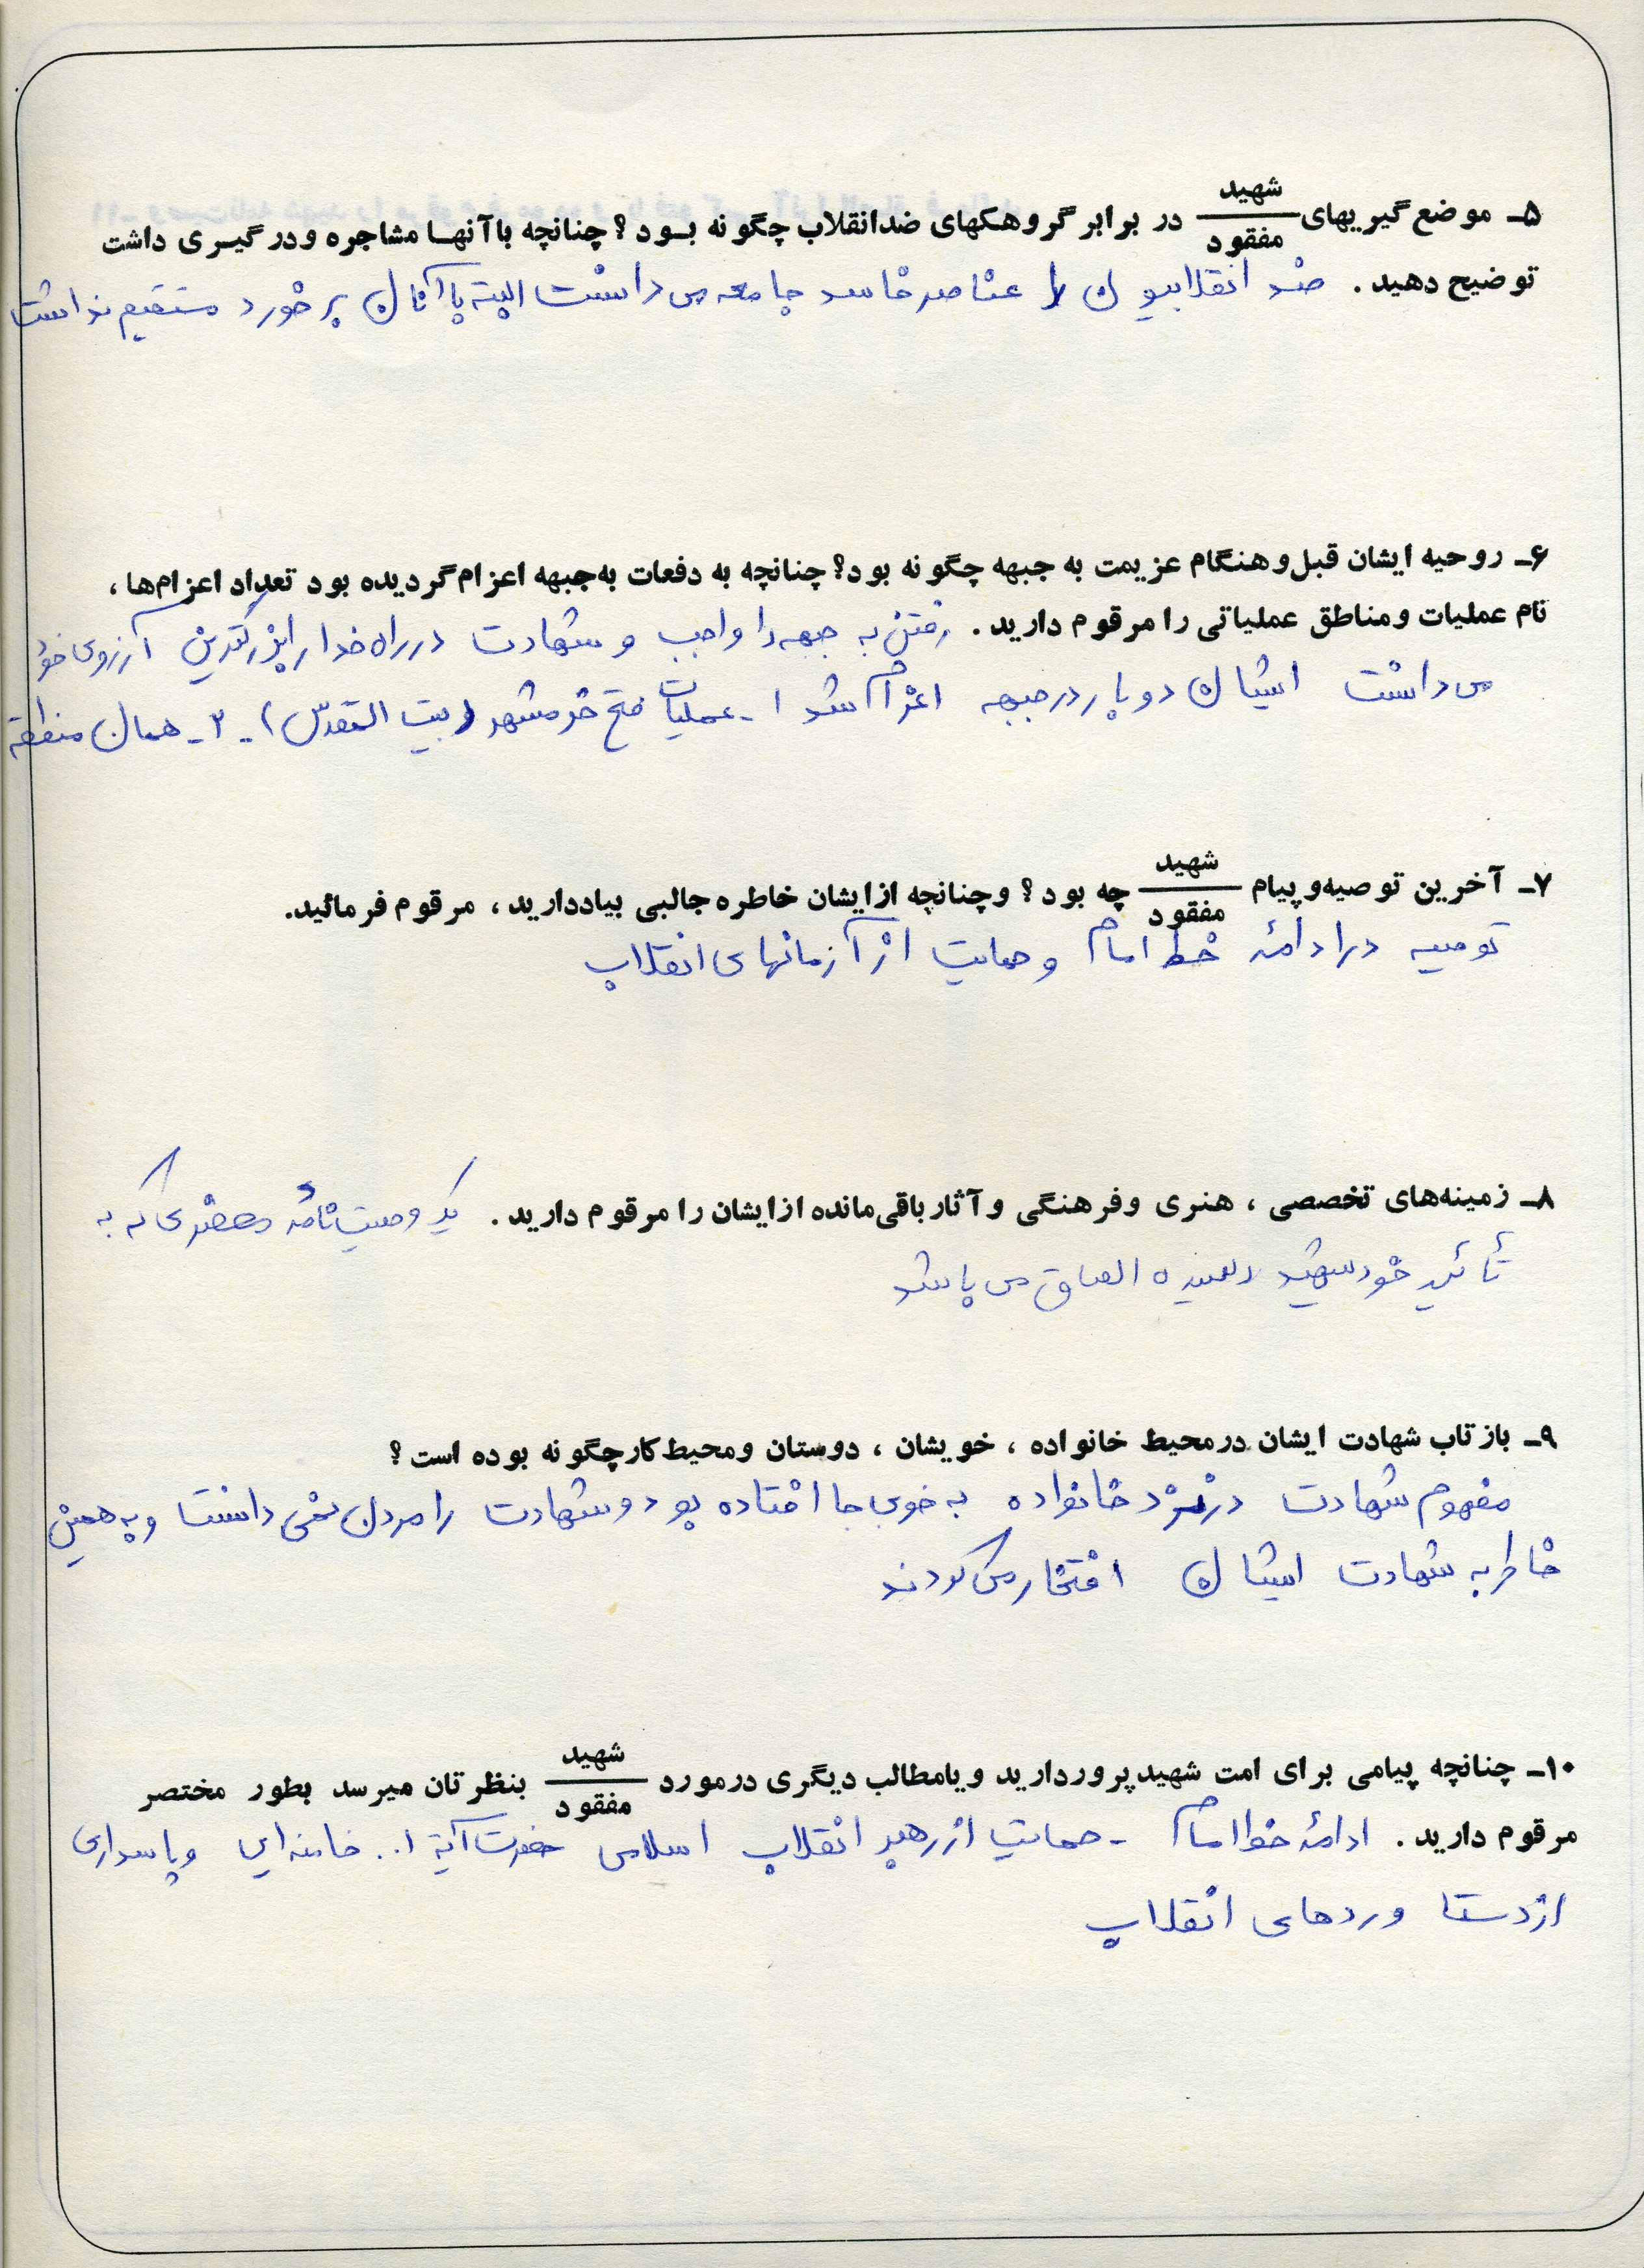 ۵ـ موضع‌گیریهای شهید/مفقود در برابر گروهکهای ضدانقلاب چگونه بود؟ چنانچه باآنها مشاجره ودرگیری داشت
توضیح دهید. ضد انقلابیون را عناصر فاسد جامعه می دانست البته باآنان برخورد مستقیم نداشت
۶ـ روحیه ایشان قبل‌وهنگام عزیمت به جبهه چگونه بود؟ چنانچه به دفعات به‌جبهه اعزام‌گردیده بود تعداد اعزام‌ها،
نام عملیات ومناطق عملیاتی را مرقوم دارید. رفتن به جبهه را واجب و شهادت درراه خدا رابزرگترین آرزوی خود
می دانست ایشان دو بار درجبهه اعزام شد ۱ـ عملیات فتح خرمشهر (بیت المقدس) ـ ۲ـ همان منطقه
۷ـ آخرین توصیه‌وپیام شهید/مفقود چه بود؟ وچنانچه ازایشان خاطره‌جالبی بیاددارید، مرقوم فرمائید.
توصیه درادامهٔ خط امام وحمایت از آرمانهای انقلاب
۸ـ زمینه‌های تخصصی، هنری وفرهنگی وآثارباقی‌مانده ازایشان را مرقوم دارید. یک وصیت نامه که به
تأئید خودشهید رسیده الصاق می باشد
۹ـ بازتاب شهادت ایشان درمحیط خانواده، خویشان، دوستان ومحیط‌کارچگونه بوده است؟
مفهوم شهادت درنزد خانواده به خوبی جا افتاده بود وشهادت رامردن نمی دانست وبه همین
خاطر به شهادت ایشان افتخار می کردند
۱۰ـ چنانچه پیامی برای امت شهیدپروردارید ویامطالب دیگری درمورد شهید/مفقود بنظرتان میرسد بطور مختصر
مرقوم دارید. ادامهٔ خط امام ـ حمایت از رهبر انقلاب اسلامی حضرت آیة ا.. خامنه‌ای وپاسداری
ازدستا وردهای انقلاب